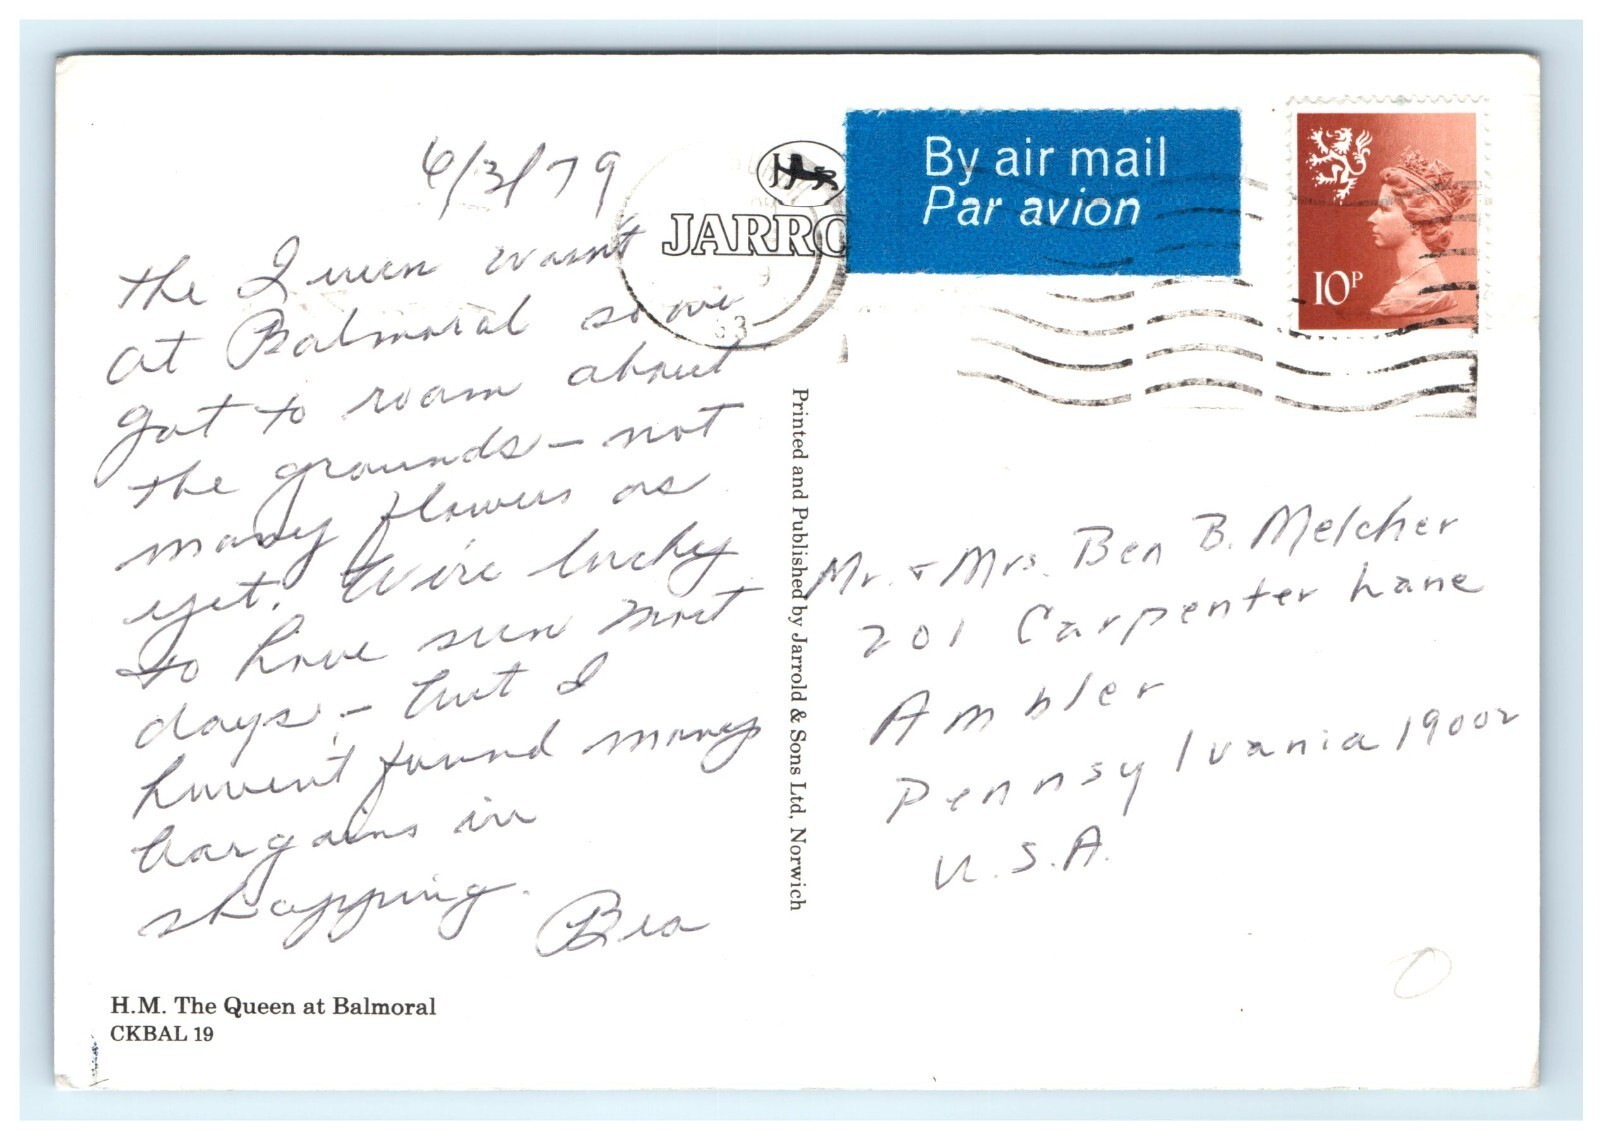 6/3/79
the Queen wasnt
at Balmoral so we
got to roam about
the grounds – not
many flowers as
yet. We're lucky
to have seen most
days – but I
haven't found many
bargains in
shopping.
Bea
H.M. The Queen at Balmoral
CKBAL 19
JARRO
63
By air mail
Par avion
10P
Printed and Published by Jarrold & Sons Ltd, Norwich
Mr. + Mrs. Ben B. Melcher
201 Carpenter Lane
Ambler
Pennsylvania 19002
U.S.A.